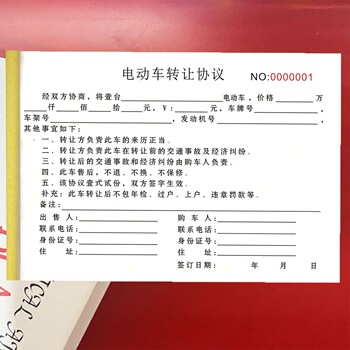 电动车转让协议 NO:0000001
经双方协商，将壹台____电动车，价格____万
____仟____佰____拾____元，￥：____元，车牌号____，
车架号____，发动机号____，
其他事宜如下：
一、转让方负责此车的来历正当。
二、转让方负责此车在转让前的交通事故及经济纠纷。
三、转让后的交通事故和经济纠纷由购车人负责。
四、此车售后，不退、不换、不保修。
五、该协议壹式贰份，双方签字生效。
补充：此车转让后不包年检、过户、上户、违章罚款等。
备注：
出售人： 购车人：
联系电话： 联系电话：
身份证号： 身份证号：
住址： 住址：
签订日期： 年 月 日